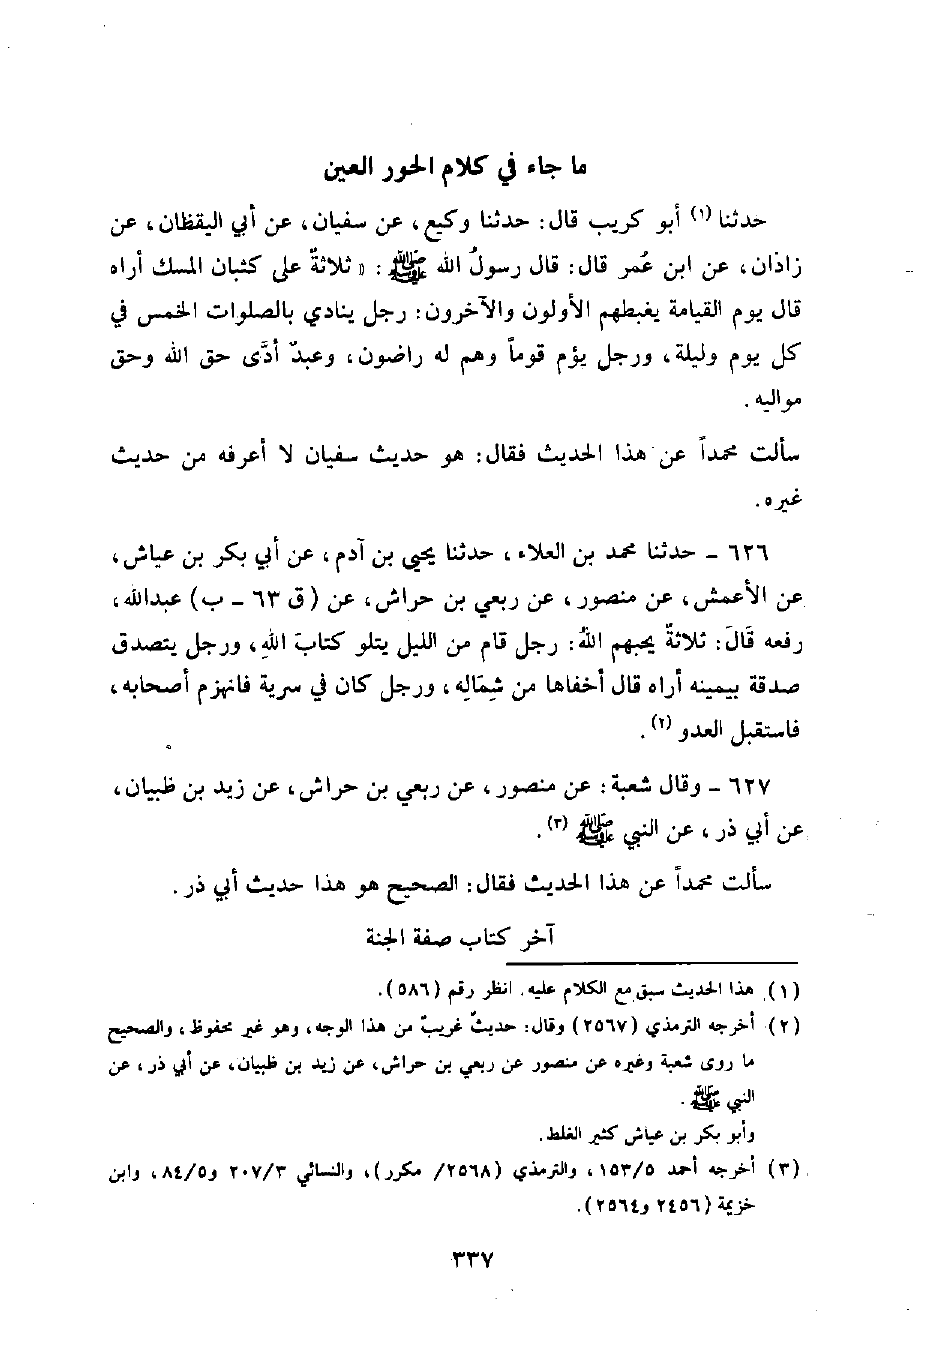 ما جاء في كلام الحور العين
حدثنا (١) أبو كريب قال: حدثنا وكيع، عن سفيان، عن أبي اليقظان، عن
زاذان، عن ابن عُمر قال: قال رسولُ الله ﷺ: « ثلاثةٌ على كثبان المسك أراه
قال يوم القيامة يغبطهم الأولون والآخرون: رجل ينادي بالصلوات الخمس في
كل يوم وليلة، ورجل يؤم قوماً وهم له راضون، وعبدٌ أدَّى حق الله وحق
مواليه.
سألت محمداً عن هذا الحديث فقال: هو حديث سفيان لا أعرفه من حديث
غيره.
٦٢٦ - حدثنا محمد بن العلاء، حدثنا يحيى بن آدم، عن أبي بكر بن عياش،
عن الأعمش، عن منصور، عن ربعي بن حراش، عن (ق ٦٣ - ب) عبدالله،
رفعه قَالَ: ثلاثةٌ يحبهم اللهُ: رجل قام من الليل يتلو كتابَ اللهِ، ورجل يتصدق
صدقة بيمينه أراه قال أخفاها من شِمَالِه، ورجل كان في سرية فانهزم أصحابه،
فاستقبل العدو (٢).
٦٢٧ - وقال شعبة: عن منصور، عن ربعي بن حراش، عن زيد بن ظبيان،
عن أبي ذر، عن النبي ﷺ (٣).
سألت محمداً عن هذا الحديث فقال: الصحيح هو هذا حديث أبي ذر.
آخر كتاب صفة الجنة
(١) هذا الحديث سبق مع الكلام عليه. انظر رقم (٥٨٦).
(٢) أخرجه الترمذي (٢٥٦٧) وقال: حديثٌ غريبٌ من هذا الوجه، وهو غير محفوظ، والصحيح
ما روى شعبة وغيره عن منصور عن ربعي بن حراش، عن زيد بن ظبيان، عن أبي ذر، عن
النبي ﷺ.
وأبو بكر بن عياش كثير الغلط.
(٣) أخرجه أحمد ١٥٣/٥، والترمذي (٢٥٦٨/ مكرر)، والنسائي ٢٠٧/٣ و٨٤/٥، وابن
خزيمة (٢٤٥٦ و٢٥٦٤).
٣٣٧